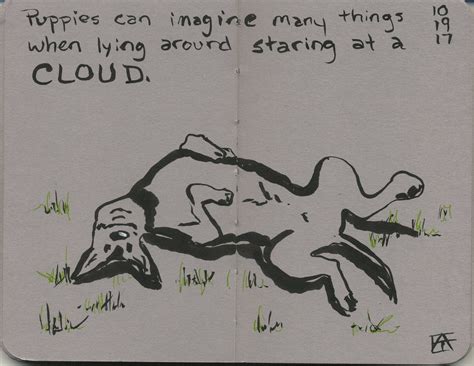 Puppies can imagine many things
when lying around staring at a
CLOUD.
10
19
17